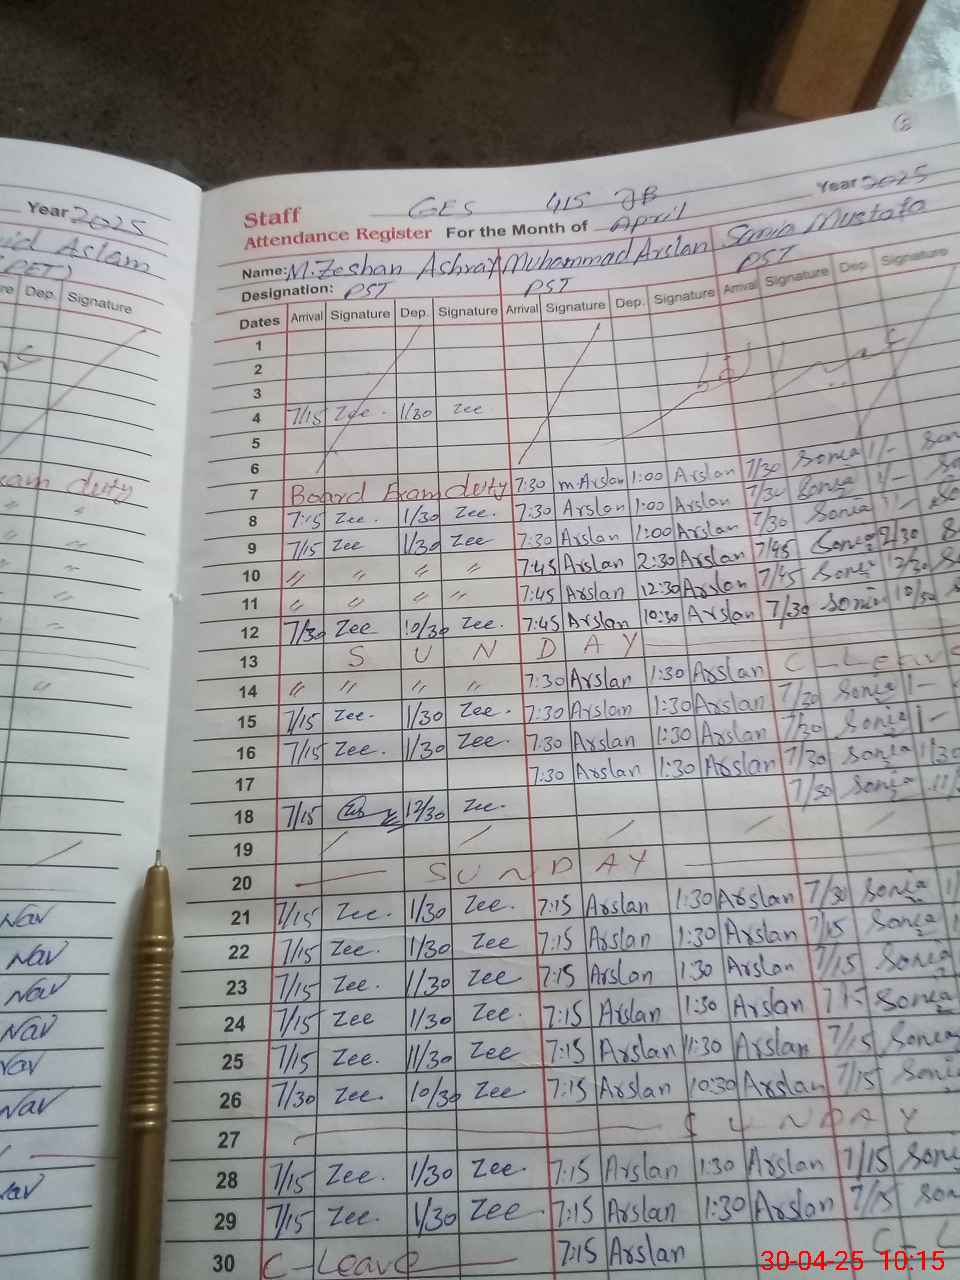 Year 2025
Aslam
Dep. Signature
duty
Nav
Nav
Nav
Nav
Nav
Nav
Staff GES 415 JB Year 2025
Attendance Register For the Month of April
Name: M. Zeshan Ashraf Muhammad Arslan Sonia Mustafa
Designation: PST PST PST
Dates Arrival Signature Dep. Signature Arrival Signature Dep. Signature Arrival Signature Dep. Signature
1
2
3
4 7/15 Zee. 1/30 Zee
5
6
7 Board Exam duty 7:30 m.Arslan 1:00 Arslan 7/30 Sonia 1/-
8 7:15 Zee. 1/30 Zee. 7:30 Arslan 1:00 Arslan 7/30 Sonia 1/-
9 7/15 Zee 1/30 Zee 7:30 Arslan 1:00 Arslan 7/30 Sonia 1/-
10 〃 〃 〃 〃 7:45 Arslan 2:30 Arslan 7/45 Sonia 2/30
11 〃 〃 〃 〃 7:45 Arslan 12:30 Arslan 7/45 Sonia 12/30
12 7/30 Zee 10/30 Zee. 7:45 Arslan 10:30 Arslan 7/30 Sonia 10/30
13 S U N D A Y
14 〃 〃 〃 〃 7:30 Arslan 1:30 Arslan C-Leave
15 7/15 Zee. 1/30 Zee. 7:30 Arslan 1:30 Arslan 7/30 Sonia 1-
16 7/15 Zee. 1/30 Zee. 7:30 Arslan 1:30 Arslan 7/30 Sonia 1-
17 7:30 Arslan 1:30 Arslan 7/30 Sonia 1/30
18 7/15 12/30 Zee. 7/30 Sonia
19
20 S U N D A Y
21 7/15 Zee. 1/30 Zee. 7:15 Arslan 1:30 Arslan 7/30 Sonia
22 7/15 Zee. 1/30 Zee 7:15 Arslan 1:30 Arslan 7/15 Sonia
23 7/15 Zee. 1/30 Zee 7:15 Arslan 1:30 Arslan 7/15 Sonia
24 7/15 Zee 1/30 Zee. 7:15 Arslan 1:30 Arslan 7:15 Sonia
25 7/15 Zee. 11/30 Zee 7:15 Arslan 11:30 Arslan 7/15 Sonia
26 7/30 Zee. 10/30 Zee 7:15 Arslan 10:30 Arslan 7/15 Sonia
27 S U N D A Y
28 7/15 Zee. 1/30 Zee. 7:15 Arslan 1:30 Arslan 7/15 Sonia
29 7/15 Zee. 1/30 Zee. 7:15 Arslan 1:30 Arslan 7/15 Son
30 C-Leave 7:15 Arslan C-L
30-04-25 10:15